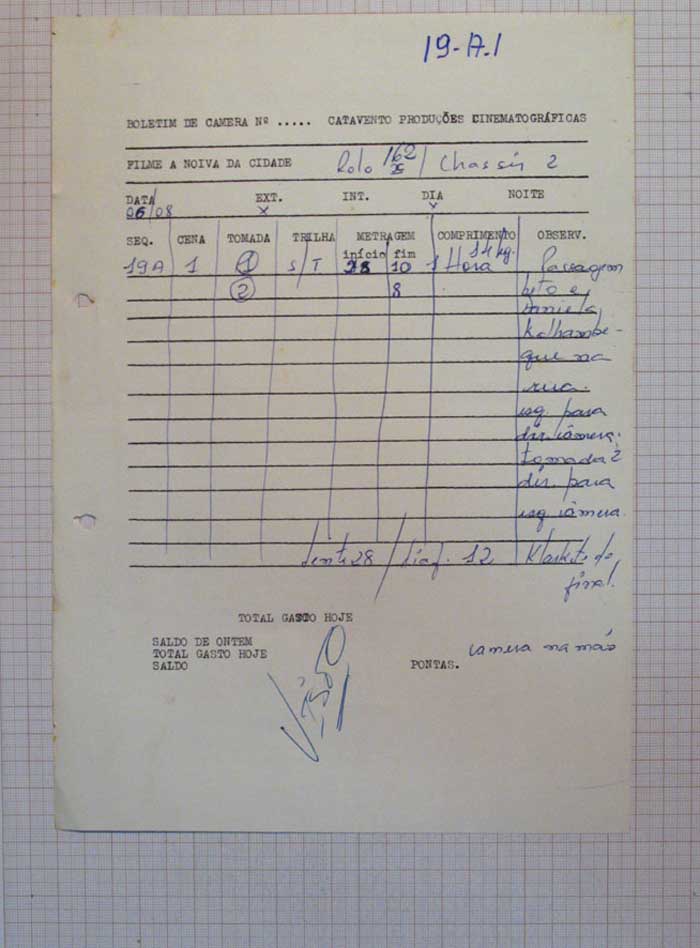 19-A.1
BOLETIM DE CAMERA Nº ..... CATAVENTO PRODUÇÕES CINEMATOGRÁFICAS
FILME A NOIVA DA CIDADE Rolo 162 / Chassis 2
DATA EXT. INT. DIA NOITE
06/08 x v
SEQ. CENA TOMADA TRILHA METRAGEM COMPRIMENTO OBSERV.
início fim 14 hg.
19A 1 1 S/T 10 1 Hora Passagem
2 8 beto e
Daniela
Kalhambe-
que na
rua.
esq para
dir. câmera.
tomada 2
dir. para
esq câmera.
lente 28 / diaf. 12 Klaket de
final.
TOTAL GASTO HOJE
SALDO DE ONTEM
TOTAL GASTO HOJE
SALDO PONTAS. camera na mão